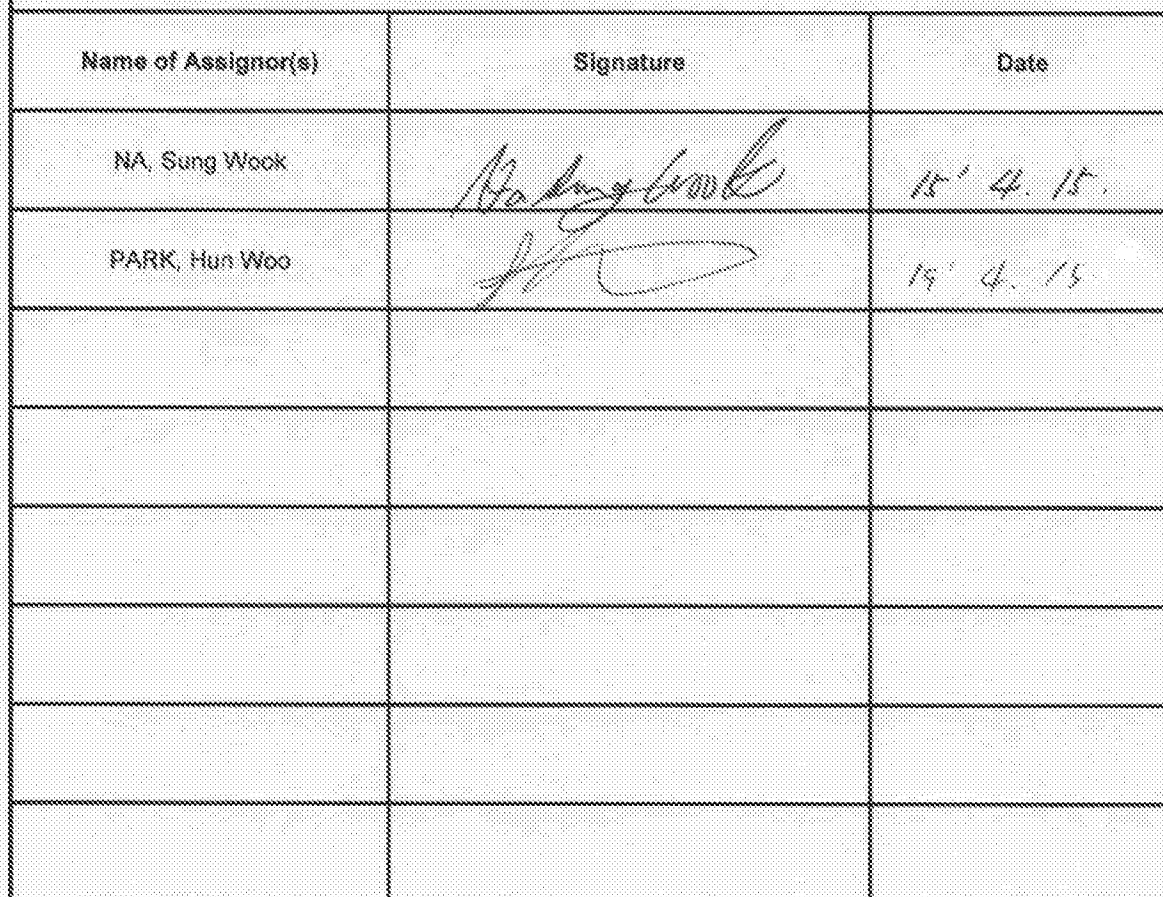 Name of Assignor(s) Signature Date
NA, Sung Wook Na Sung Wook 15' 4. 15.
PARK, Hun Woo 15' 4. 15